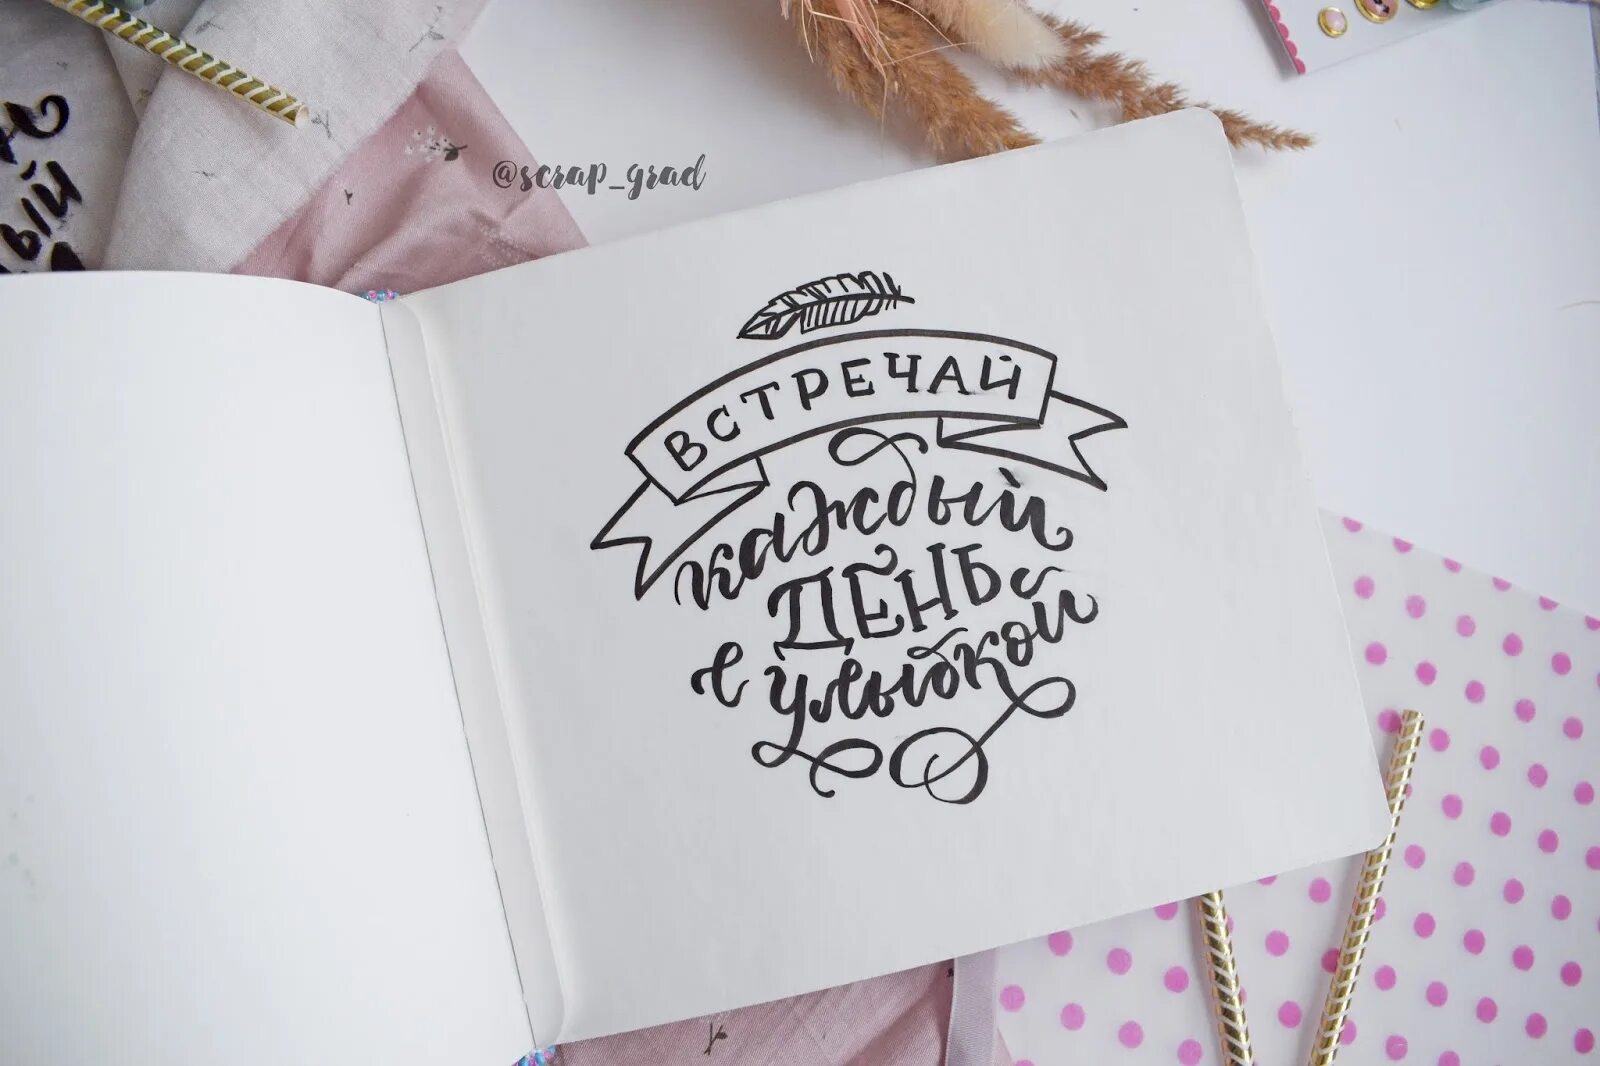 @scrap_grad
ВСТРЕЧАЙ
каждый
ДЕНЬ
с улыбкой